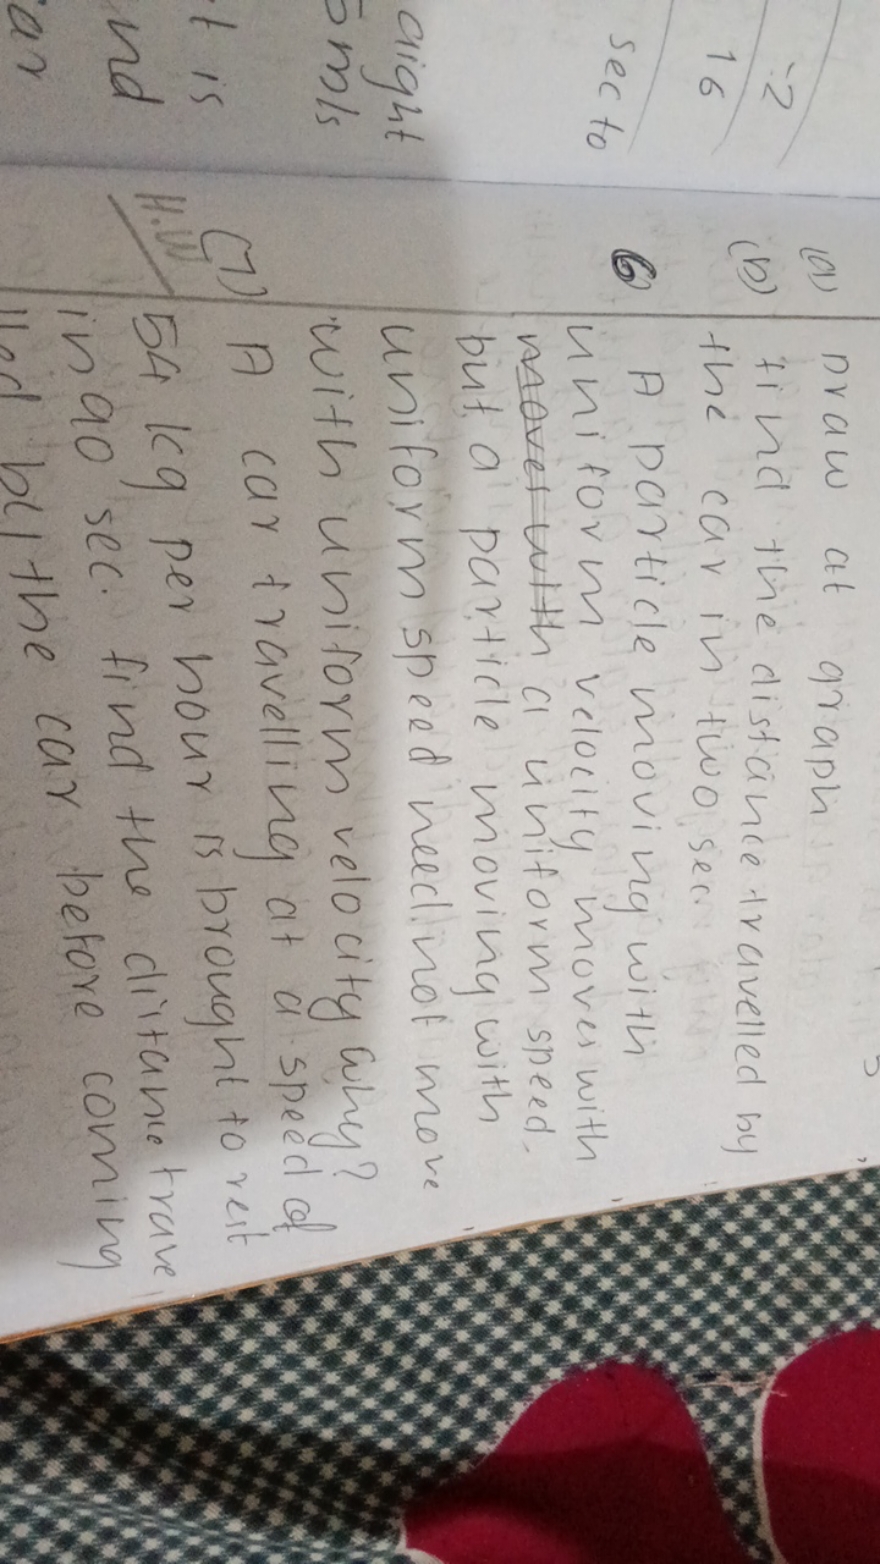 :2
16
sec to
aight
5 m/s
t is
nd
ar
(a) Draw at graph
(b) find the distance travelled by
the car in two sec.
6) A particle moving with
uniform velocity moves with
mover with a uniform speed.
but a particle moving with
uniform speed need not move
with uniform velocity why?
(7) A car travelling at a speed of
H.W 54 kg per hour is brought to rest
in 90 sec. find the distance trave
lled by the car before coming